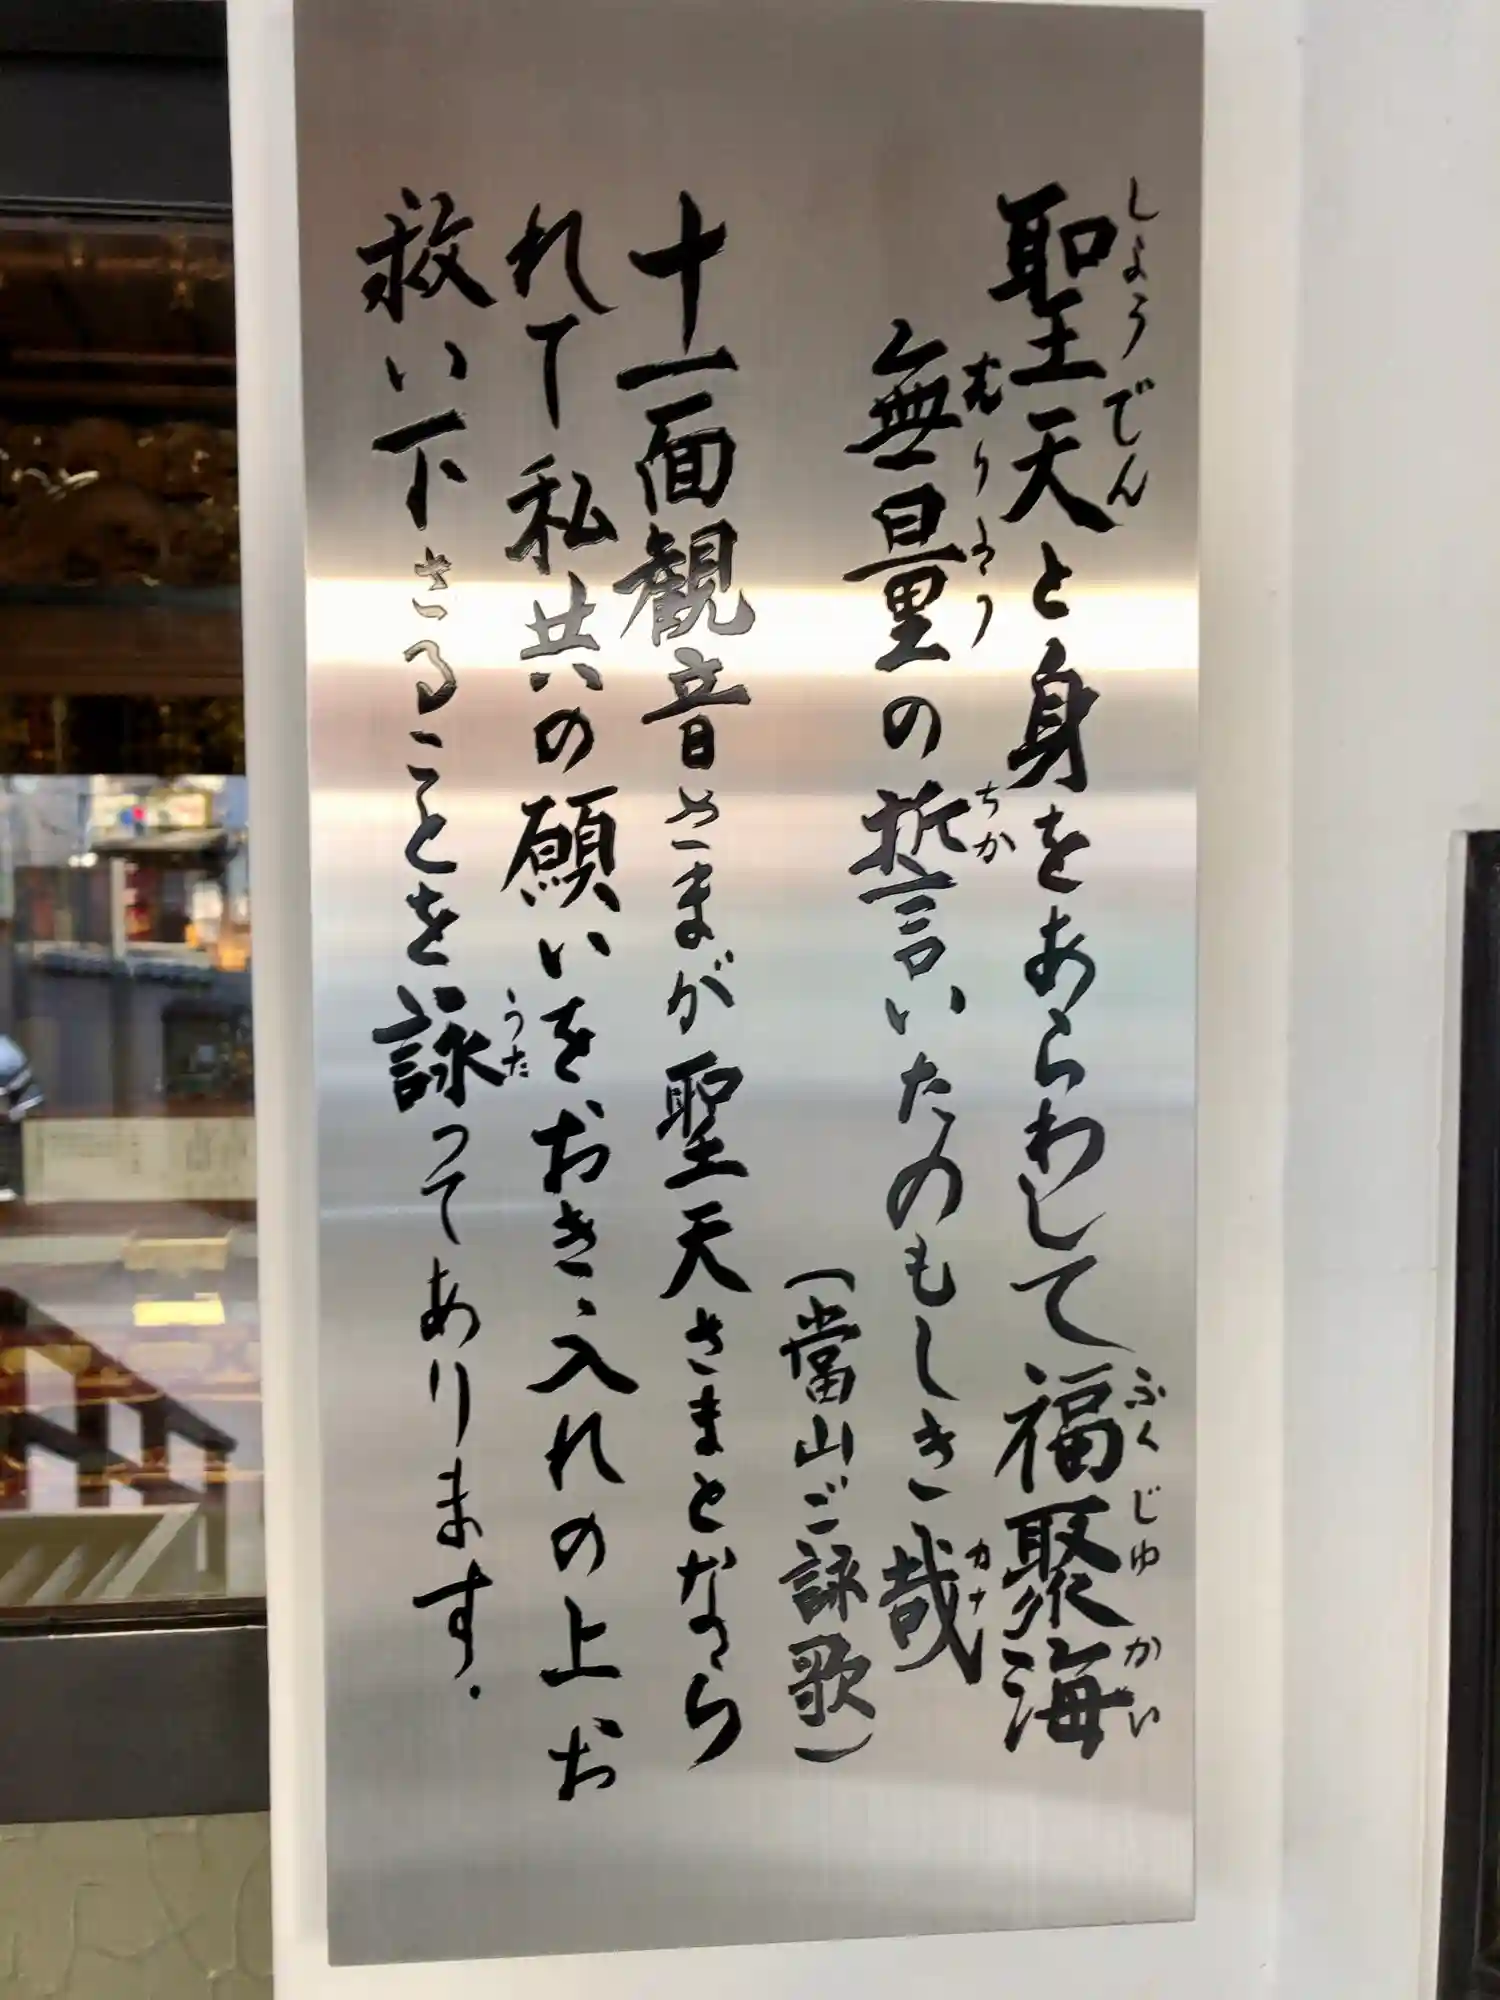 聖天と身をあらわして福聚海
無量の誓いたのもしき哉
(當山ご詠歌)
十一面観音さまが聖天さまとなら
れて私共の願いをおき入れの上お
救い下さることを詠ってあります.
しょうでん
ふくじゅかい
むりょう
ちか
カナ
うた